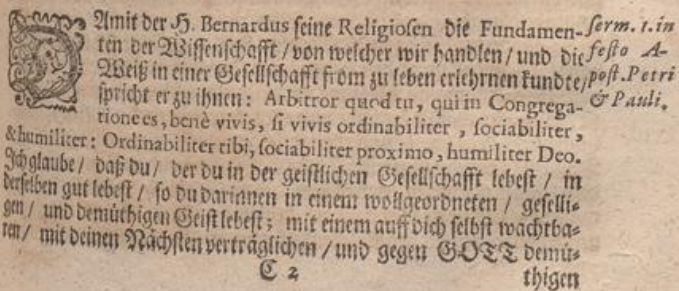 DAmit der H. Bernardus seine Religiosen die Fundamen-
ten der Wissenschafft / von welcher wir handlen / und die
Weiß in einer Gesellschafft from zu leben erlehrnen kundte /
spricht er zu ihnen: Arbitror quod tu, qui in Congrega-
tione es, benè vivis, si vivis ordinabiliter, sociabiliter,
& humiliter: Ordinabiliter tibi, sociabiliter proximo, humiliter Deo.
Ich glaube / daß du / der du in der geistlichen Gesellschafft lebest / in
derselben gut lebest / so du darinnen in einem wollgeordneten / geselli-
gen / und demüthigen Geist lebest; mit einem auff dich selbst wachtba-
ren / mit deinen Nächsten verträglichen / und gegen GOTT demü-
C 2 thigen
serm. 1. in
festo A-
post. Petri
& Pauli.